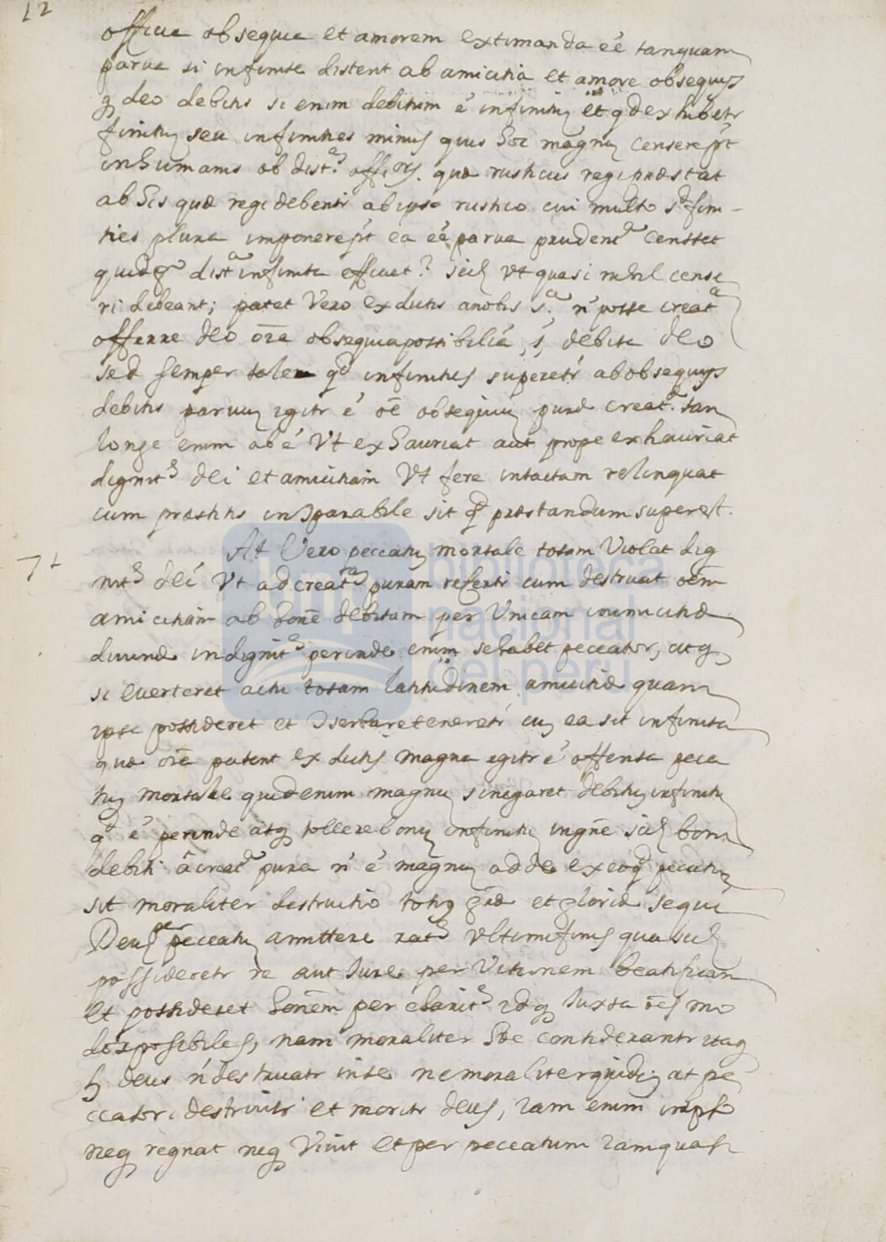 12
officia obsequia et amorem extimanda eē tanquam
parua si infinite distent ab amicitia et amore obsequijs
q deo debitis si enim debitum ē infinitu et qd exhibetr
finitu seu infinities minus quis hoc magnu censere pt
in humanis ob dista officioru que rusticus regi præstat
ab his quæ regi debentr ab ipso rustico cui multo
ties plura imponere pt ea eē parua prudentr censtet
quid dista infinita efficiet? scil vt quasi nihil cense
ri debeant; patet Vero ex dictis a nobis non posse creata
offerre deo oīa obsequia possibilia, debita deo
sed semper talem qd infinities superetr ab obsequijs
debitis paruu igitr ē oē obsequiu puræ creatæ tam
longe enim abē Vt exhauriat aut prope exhauriat
dignite dei et amicitiam Vt fere intactam relinquat
cum præstitis inseparabile sit qd præstandum superest.
7+
At Vero peccatu mortale totam Violat dig
nite dei Vt ad creata puram refertr cum destruat oēm
amicitiam ab hoīe debitam per Vnicam inimicitiæ
diuinæ indignite perinde enim se habet peccator, atq
si euerteret actu totam latitudinem amicitiæ quam
ipse possideret et seruare teneretr cu ea sit infinita
quæ oīa patent ex dictis magna igitr ē offensa pecca
tu mortale quid enim magnu si negaret debitu infinitu
qd ē perinde atq tollere bonu infinitu in gñe scil boni
debiti a creata pura n ē magnu adde ex eo qd peccatu
sit moraliter destructio totiq græ et gloriæ sequi
Deus per peccatu amittere ratē Vltimi finis qua scil
possideretr re aut Jure per Visionem beatificam
et possideret hoīem per charite idq Juxta oēs mo
dos possibiles, nam moraliter hæc considerantr itaq
deus n destruatr in se ne moraliter quide at pec
catori destruitr et moritr deus, iam enim in ipso
neq regnat neq Viuit et per peccatum iam quasi
biblioteca
nacional
del perú